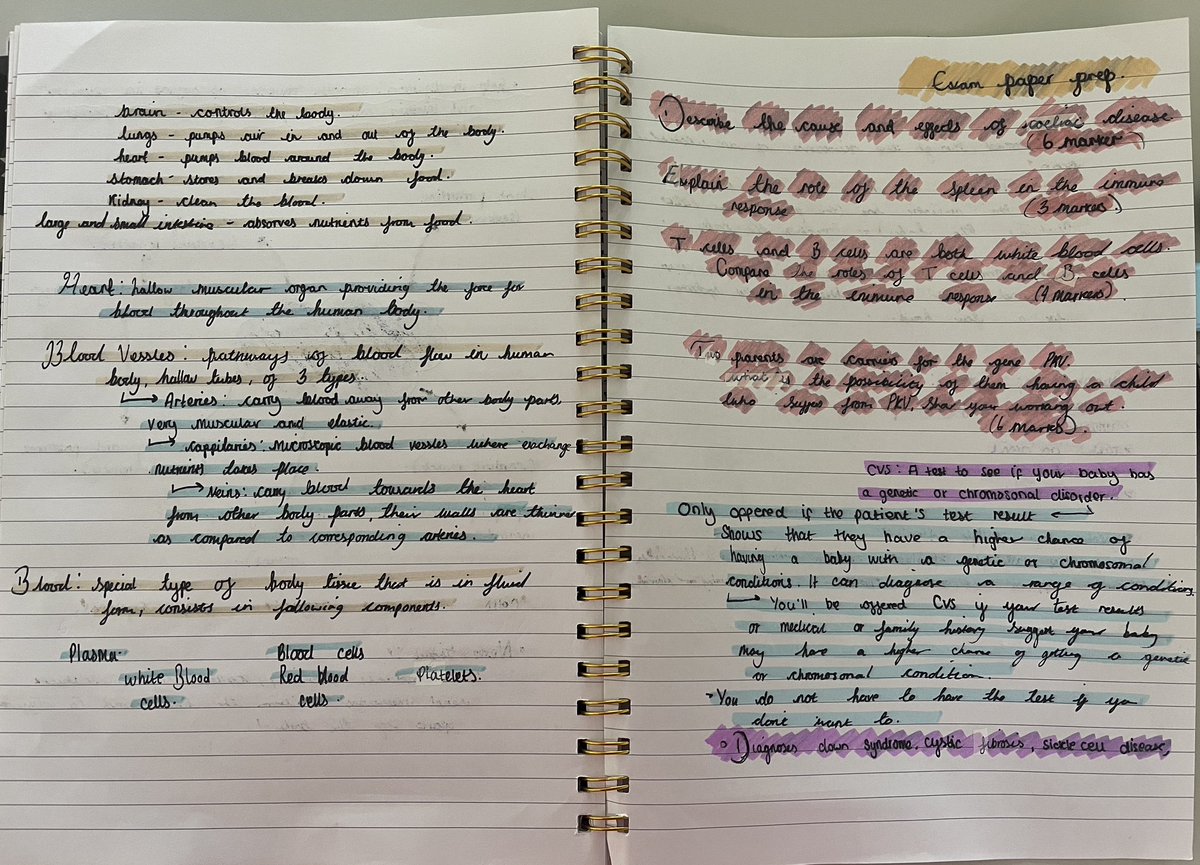 brain - controls the body.
lungs - pumps air in and out of the body.
heart - pumps blood around the body.
stomach - stores and breaks down food.
Kidney - clean the blood.
large and small intestine - absorves nutrients from food.
Heart: hallow muscular organ providing the force for
blood throughout the human body.
Blood Vessles: pathways of blood flow in human
body, hallow tubes, of 3 types.
Arteries: carry blood away from other body parts,
very muscular and elastic.
cappilaries: microscopic blood vessles where exchange
nutrients takes place.
Veins: carry blood towards the heart
from other body parts, their walls are thinner
as compared to corresponding arteries.
Blood: special type of body tissue that is in fluid
form, consists in following components.
Plasma. Blood cells
white Blood Red blood Platelets.
cells. cells.
Exam paper prep.
Describe the cause and effects of coeliac disease
(6 marker)
Explain the role of the spleen in the immune
response (3 marker)
T cells and B cells are both white blood cells.
Compare the roles of T cells and B cells
in the immune response (4 marker)
Two parents are carriers for the gene PKU.
what is the possibility of them having a child
who suffers from PKU. Show your working out.
(6 marks)
CVS: A test to see if your baby has
a genetic or chromosonal disorder.
Only offered if the patient's test result
Shows that they have a higher chance of
having a baby with a genetic or chromosomal
conditions. It can diagnose a range of conditions.
You'll be offered CVS if your test results
or medical or family history suggest your baby
may have a higher chance of getting a genetic
or chromosonal condition.
- You do not have to have the test if you
dont want to.
Diagnoses down syndrome, cystic fibroses, sickle cell disease,